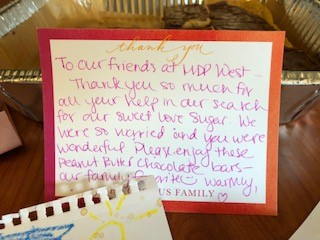 thank you
To our friends at MDP West -
Thank you so much for
all your help in our search
for our sweet love Sugar. We
were so worried and you were
wonderful Please enjoy these
Peanut Butter Chocolate bars -
our family Warmly,
US FAMILY